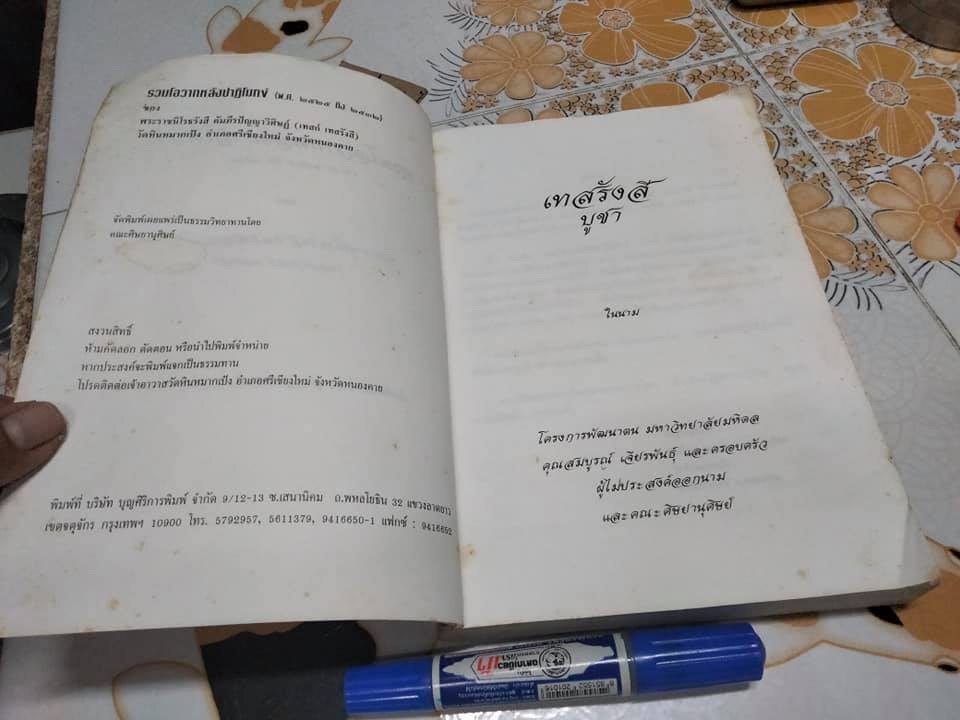 รวมโอวาทหลังปาฏิโมกข์ (พ.ศ. ๒๕๒๕ ถึง ๒๕๓๒)
ของ
พระราชนิโรธรังสี คัมภีรปัญญาวิศิษฎ์ (เทสก์ เทสรังสี)
วัดหินหมากเป้ง อำเภอศรีเชียงใหม่ จังหวัดหนองคาย
จัดพิมพ์เผยแพร่เป็นธรรมวิทยาทานโดย
คณะศิษยานุศิษย์
สงวนสิทธิ์
ห้ามคัดลอก ตัดตอน หรือนำไปพิมพ์จำหน่าย
หากประสงค์จะพิมพ์แจกเป็นธรรมทาน
โปรดติดต่อเจ้าอาวาสวัดหินหมากเป้ง อำเภอศรีเชียงใหม่ จังหวัดหนองคาย
พิมพ์ที่ บริษัท บุญศิริการพิมพ์ จำกัด 9/12-13 ซ.เสนานิคม ถ.พหลโยธิน 32 แขวงลาดยาว
เขตจตุจักร กรุงเทพฯ 10900 โทร. 5792957, 5611379, 9416650-1 แฟกซ์ : 9416652
เทสรังสี
บูชา
ในนาม
โครงการพัฒนาตน มหาวิทยาลัยมหิดล
คุณสมบูรณ์ เจียรพันธุ์ และครอบครัว
ผู้ไม่ประสงค์ออกนาม
และคณะศิษยานุศิษย์